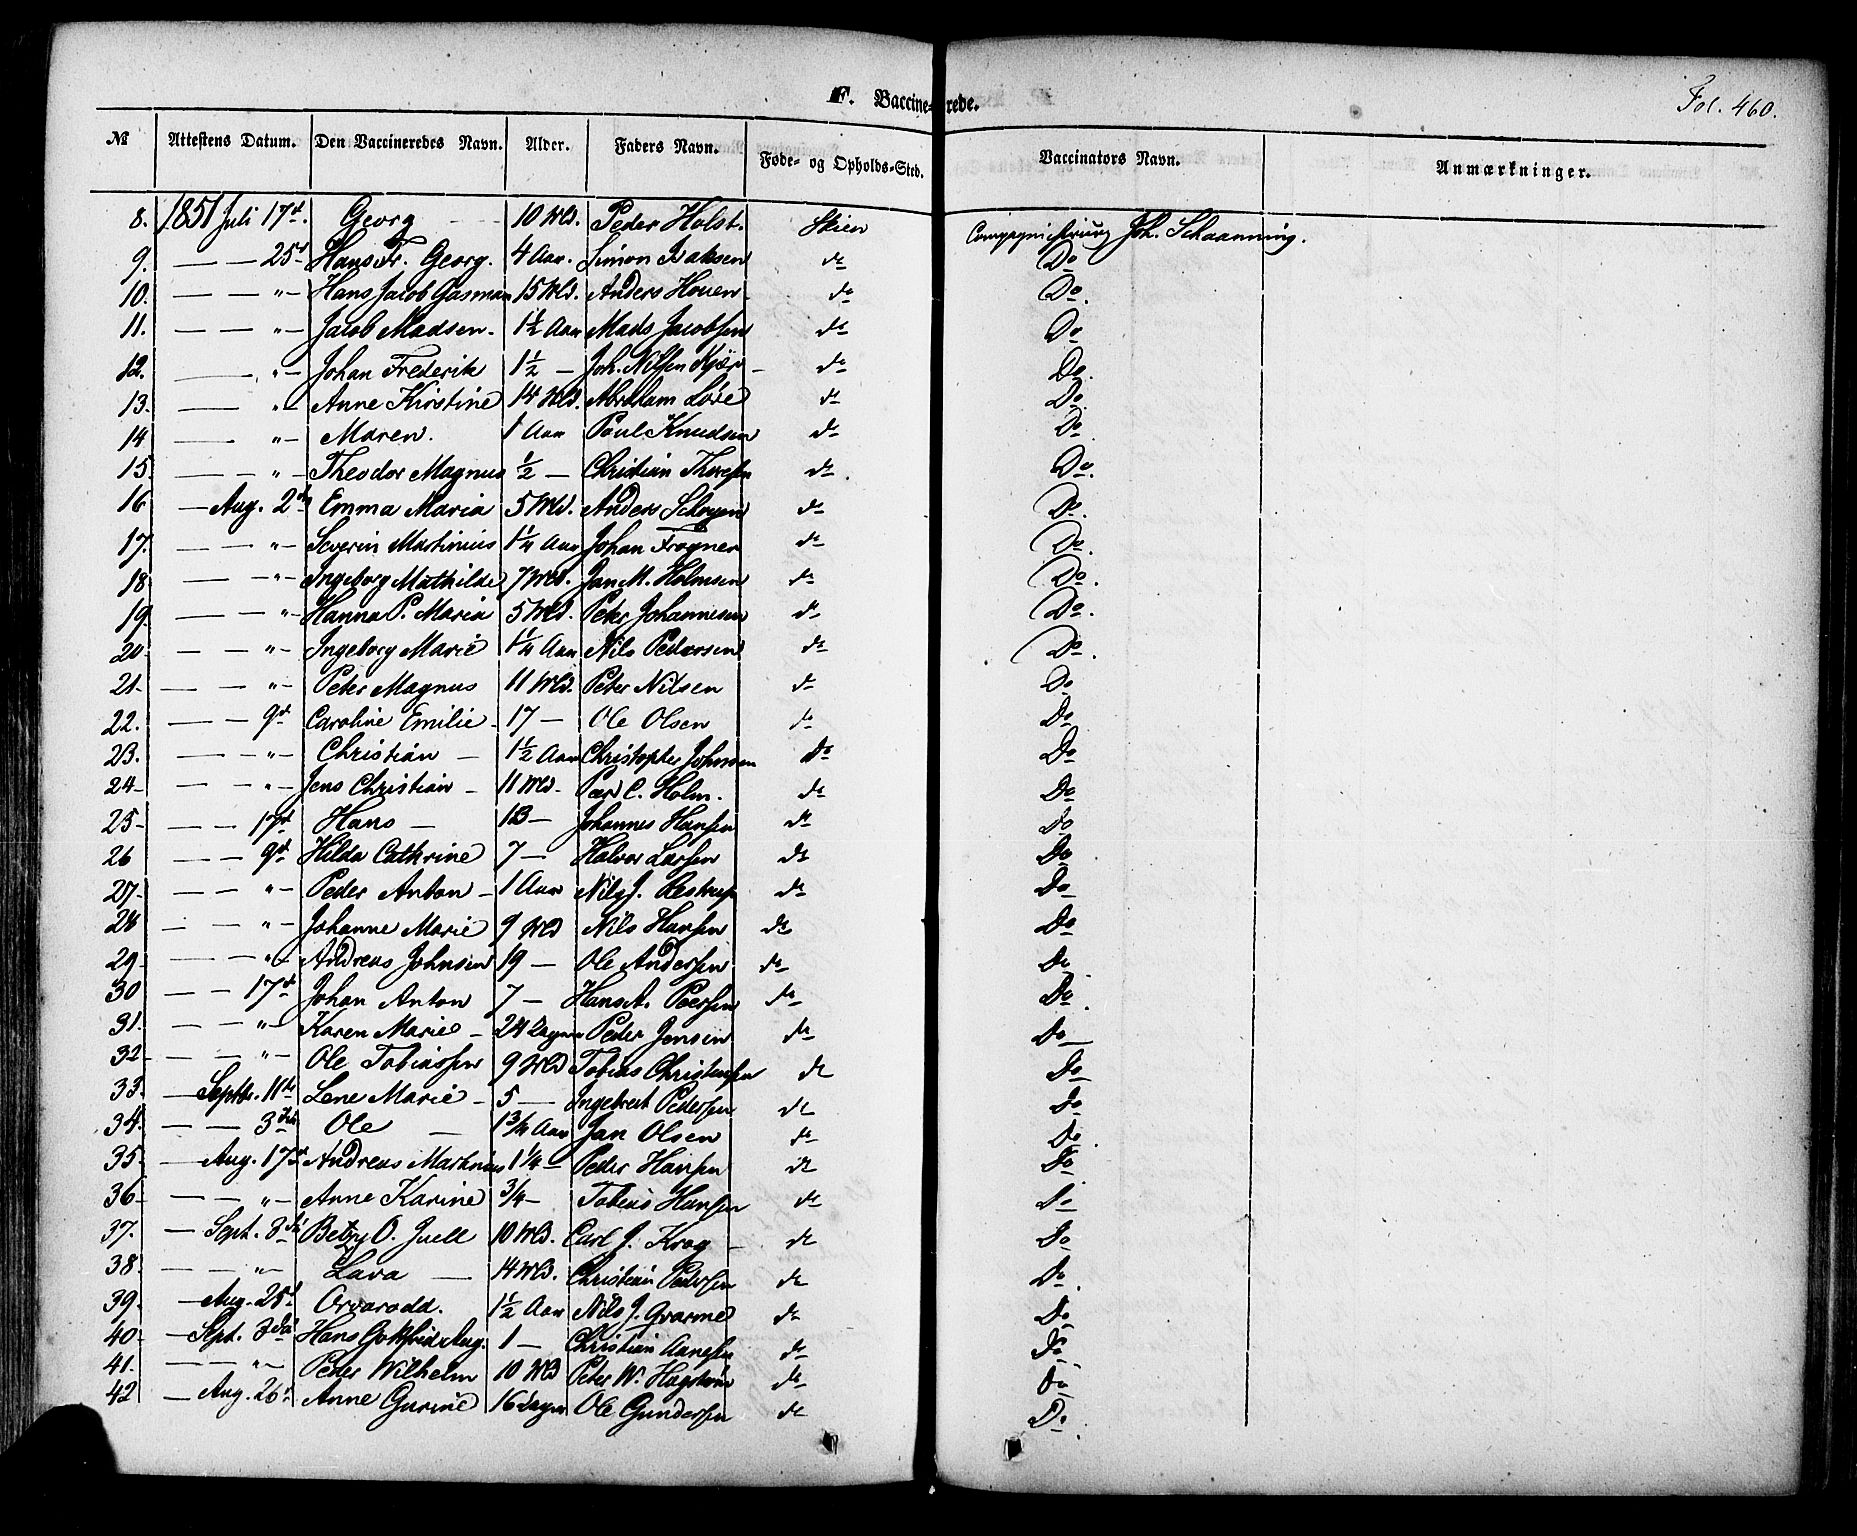 F. Vaccinerede.
Fol. 460.
№ Attestens Datum. Den Vaccineredes Navn. Alder. Faders Navn. Føde- og Opholds-Sted. Vaccinators Navn. Anmærkninger.
8. 1851 Juli 17d. Georg — 10 Md. Peder Holst. Skien Compagnichirurg Joh. Schaanning.
9. — — 25d Hans Fr. Georg. 4 Aar. Simon Isaksen do Do
10. — — "— Hans Jacob Gasman 15 Md. Anders Houen do Do.
11. — — "— Jacob Madsen. 1½ Aar Mads Jacobsen do Do
12. — "— Johan Frederik 1½ — Joh. Nilsen Kjær — do Do.
13. — "— Anne Kirstine 14 Md. Abraham do Do.
14 — "— Maren. 1 Aar Poul Knudsen do Do
15. — — "— Theodor Magnus ½ — Christian Thoresen do Do.
16 — Aug. 2den Emma Maria 5 Md. Anders do Do.
17. — — "— Severin Martinius 1¼ Aar Johan Frogner do Do.
18 — — "— Ingeborg Mathilde 7 Md. Jan M. Holmsen do Do.
19. — — "— Hanna P. Maria 5 Md. Peter Johannesen do Do.
20 — — "— Ingeborg Marie 1¼ Aar Nils Pedersen do Do.
21. — — "— Peter Magnus 11 Md. Peter Nilsen do Do
22. — — 9d Caroline Emilie — 17 — Ole Olsen do Do
23. — — "— Christian — 1½ Aar Christopher Johnsen Do Do
24 — — "— Jens Christian — 11 Md. C. Holm. do Do
25 — — 17d Hans — 13 — Johannes Hansen do Do
26 — — 9d Hilda Cathrine 7 — Halvor Larsen do Do
27 — — "— Peder Anton — 1 Aar Nils J. do Do
28 — — "— Johanne Marie 9 Md Nils Hansen do Do
29 — — "— Andreas Johnsen 19 — Ole Andersen do Do
30 — — 17d Johan Anton 7 — Hans A. do Do.
31. — — "— Karen Marie — 24 Dage Peder Jensen do Do
32 — — "— Ole Tobiassen 9 Md Tobias Christensen do Do
33. — Septbr. 11te Lene Marie — 5 — Ingebret Pedersen do Do
34. — — 3die Ole — 1¾ Aar Jan Olsen do Do.
35. — Aug. 17d Andreas Martinius 1¼ — Peder Hansen do Do
36 — — "— Anne Karine ¾ — Tobias Hansen do Do
37. — Sept. 3die Betzy O. Juell 10 Md. Carl J. Krog — do Do
38. — — "— Lava — 14 Md. Christian Pedersen do Do.
39. — Aug. 25d Orvarodd. 1½ Aar Nils J. Gvarme do Do
40 — Sept. 3die Hans Gotfried Aug. 1 — Christian Aanesen do Do
41. — — "— Peder Wilhelm 10 Md Peter W. Hagstrøm do Do
42 — Aug. 26d Anne Gurine 16 Dage Ole Gundersen do Do.